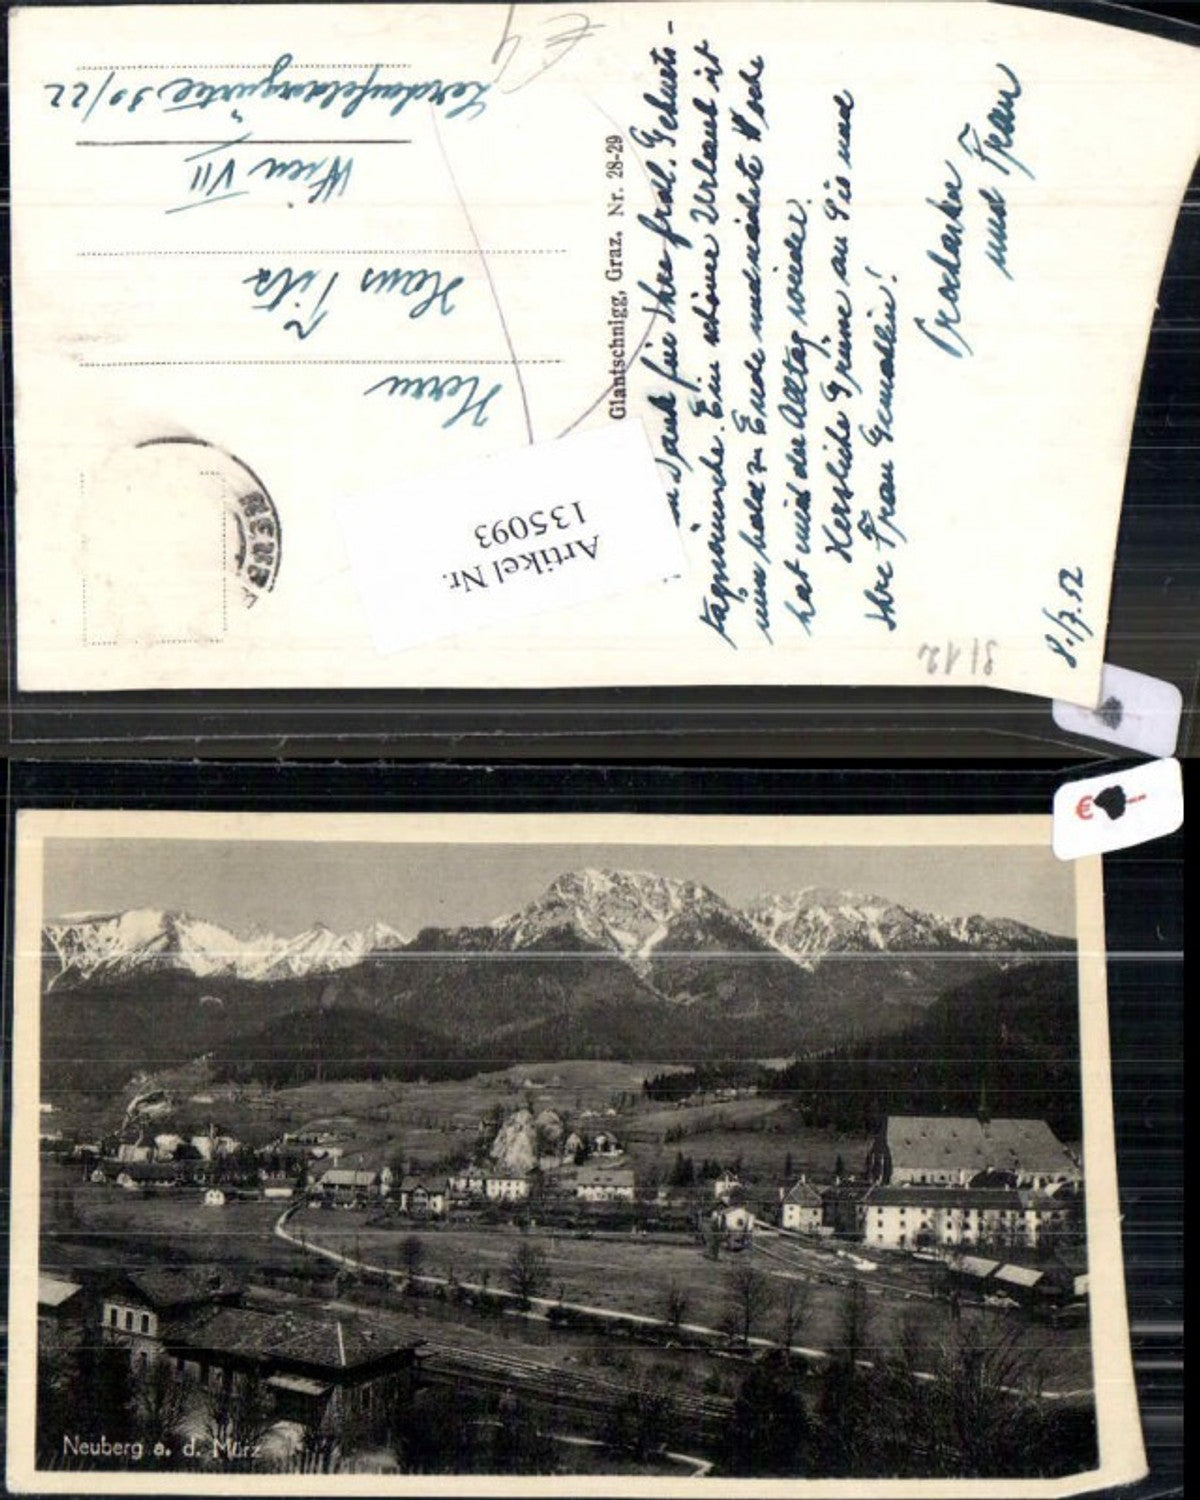 € 4
Herrn
Hans Tilz
Wien VII
Lerchenfeldergürtel 30/22
NEUBE
Glantschnigg, Graz. Nr. 28-29
Artikel Nr.
135093
Dank für Ihre frdl. Geburts-
tagswünsche. Ein schöner Urlaub ist
nun bald zu Ende und nächste Woche
hat mich der Alltag wieder.
Herzliche Grüsse an Sie und
Ihre Frau Gemahlin!
und Frau
8./7.52
€
Neuberg a. d. Mürz